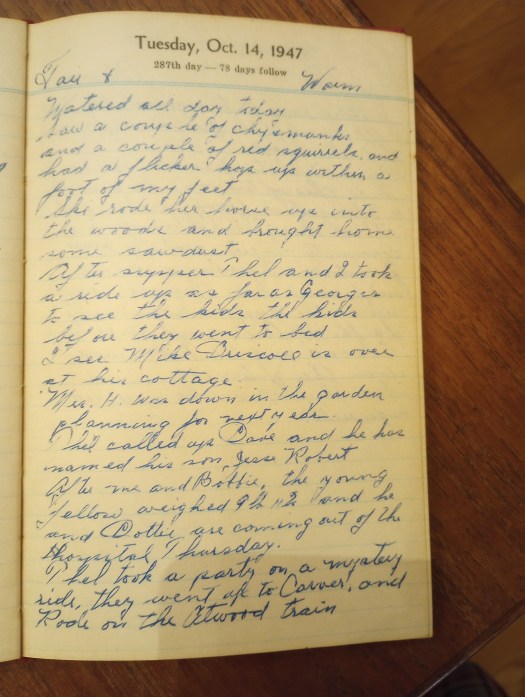 Tuesday, Oct. 14, 1947
287th day — 78 days follow
Fair & Warm
Watered all day today
Saw a couple of chipmunks
and a couple of red squirrels and
had a flicker hop up within a
foot of my feet
She rode her horse up into
the woods and brought home
some sawdust
After supper Thel and I took
a ride up as far as Georges
to see the kids the kids
before they went to bed
I see Mike Driscoll is over
at his cottage
Mrs. H. was down in the garden
planning for next year
Thel called up Dave and he has
named his son Jesse Robert
After me and Bobbie, the young
fellow weighed 9 lb and he
and Dottie are coming out of the
Hospital Thursday.
Thel took a party on a mystery
ride, they went up to Carver, and
Rode on the Atwood train